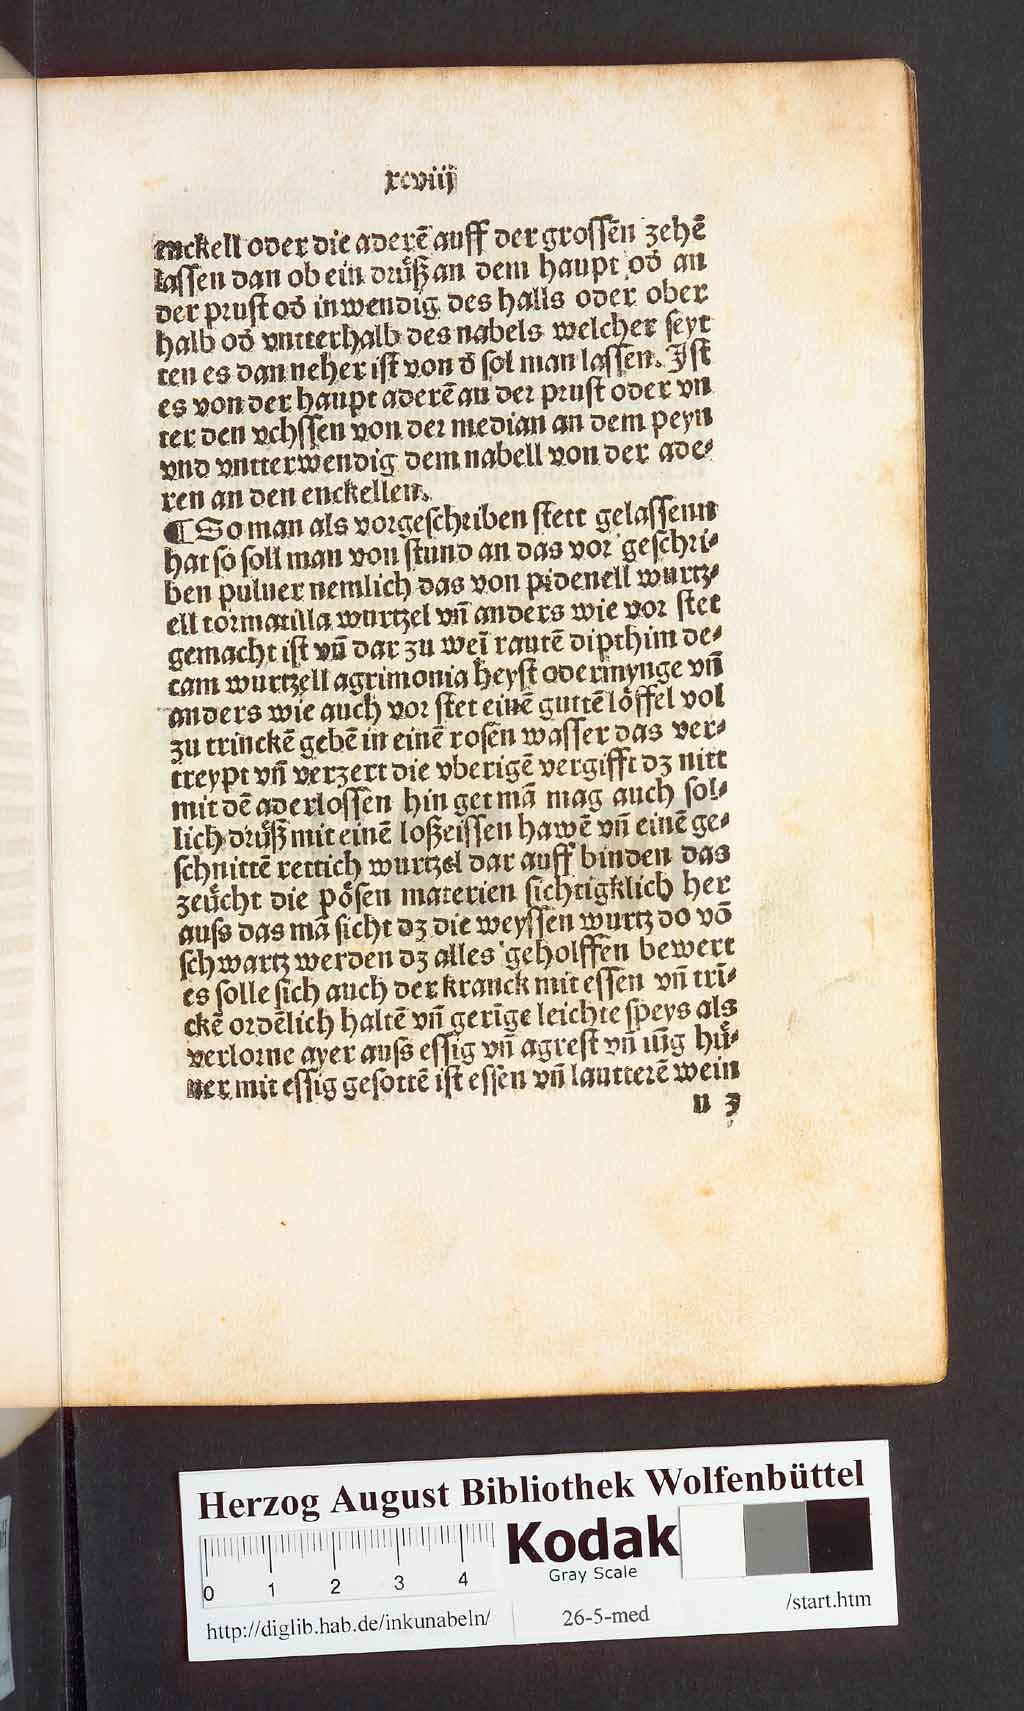 xcviij
enckell oder die aderē auff der grossen zehē
lassen dan ob ein druͤß an dem haupt od̄ an
der prust od̄ inwendig des halls oder ober
halb od̄ vntterhalb des nabels welcher seyt
ten es dan neher ist von d̄ sol man lassen. Ist
es von der haupt aderē an der prust oder vn
ter den vchssen von der median an dem peyn
vnd vntterwendig dem nabell von der ade⸗
ren an den enckellen.
¶ So man als vorgeschriben stett gelassenn
hat so soll man von stund an das vor geschri⸗
ben puluer nemlich das von pidenell wurtz⸗
ell tormatilla wurtzel vn̄ anders wie vor stet
gemacht ist vn̄ dar zu weī rautē dipthim de⸗
tam wurtzell agrimonia heyst odermynge vn̄
anders wie auch vor stet einē guttē loͤffel vol
zu trinckē gebē in einē rosen wasser das ver⸗
treypt vn̄ verzert die vberigē vergifft dz nitt
mit dē aderlossen hin get mā mag auch sol⸗
lich druͤß mit einē loßeissen hawē vn̄ einē ge⸗
schnittē rettich wurtzel dar auff binden das
zeuͤcht die poͤsen materien sichtigklich her
auss das mā sicht dz die weyssen wurtz do vō
schwartz werden dz alles geholffen bewert
es solle sich auch der kranck mit essen vn̄ trī⸗
ckē ordēlich haltē vn̄ gerīge leichte speys als
verlorne ayer auss essig vn̄ agrest vn̄ iūg huͤ⸗
ner mit essig gesottē ist essen vn̄ lautterē wein
n 3
Herzog August Bibliothek Wolfenbüttel
0 1 2 3 4
Kodak
Gray Scale
http://diglib.hab.de/inkunabeln/
26-5-med
/start.htm